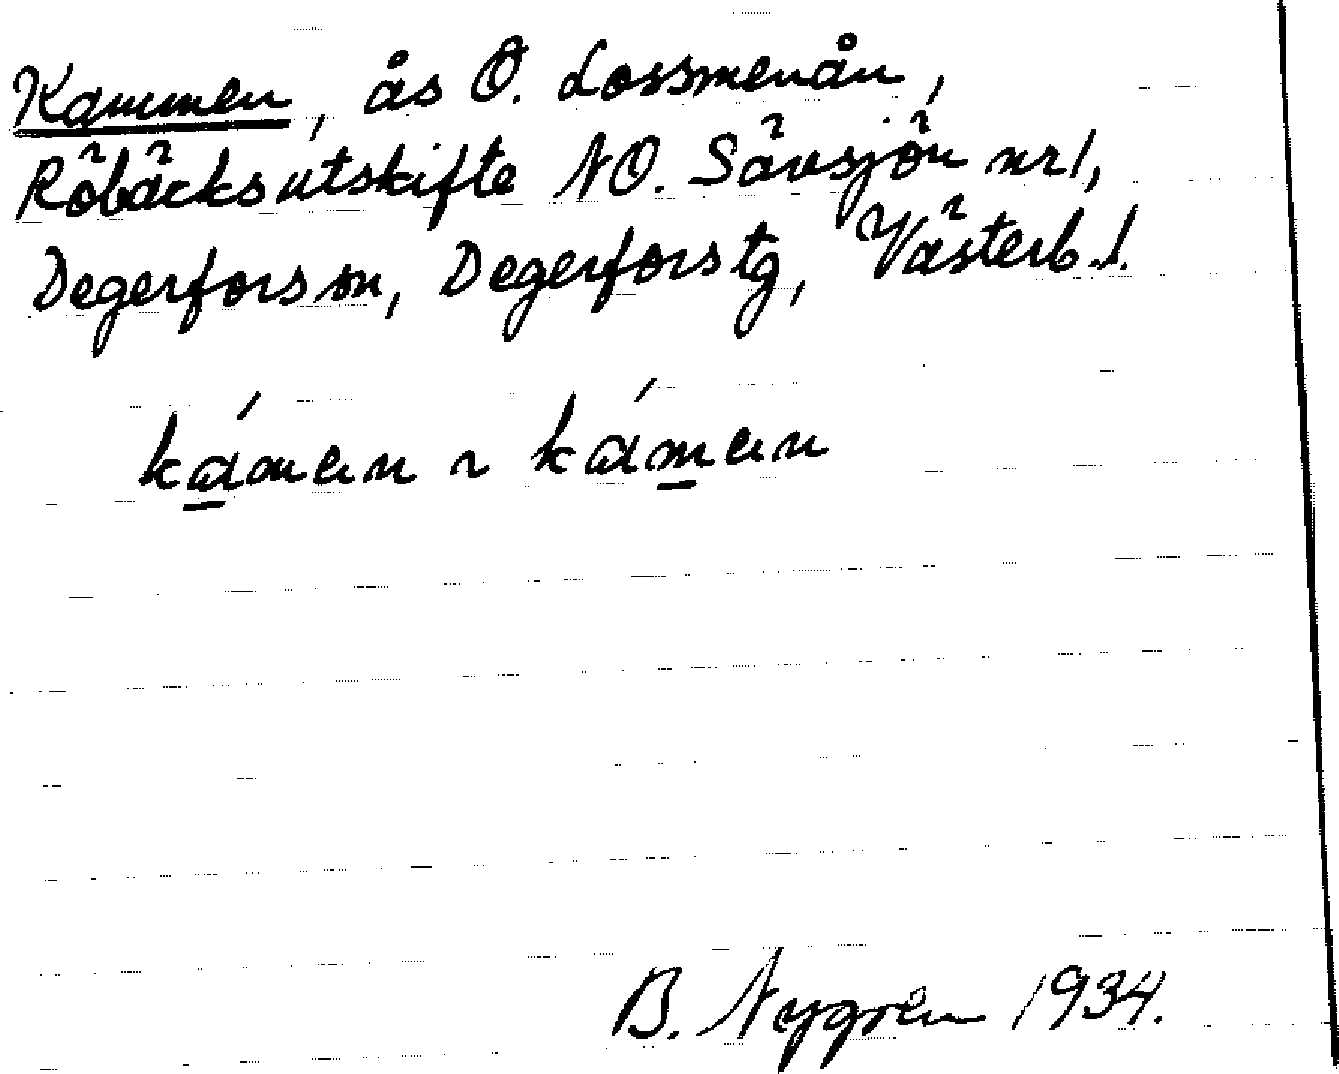 Kammen, ås Ö. Lossmenån,
Röbäcksutskifte NO. Sävsjön nr 1,
Degerfors sn, Degerfors tg, Västerb. l.
kámen ~ kámen
B. Nygren 1934.